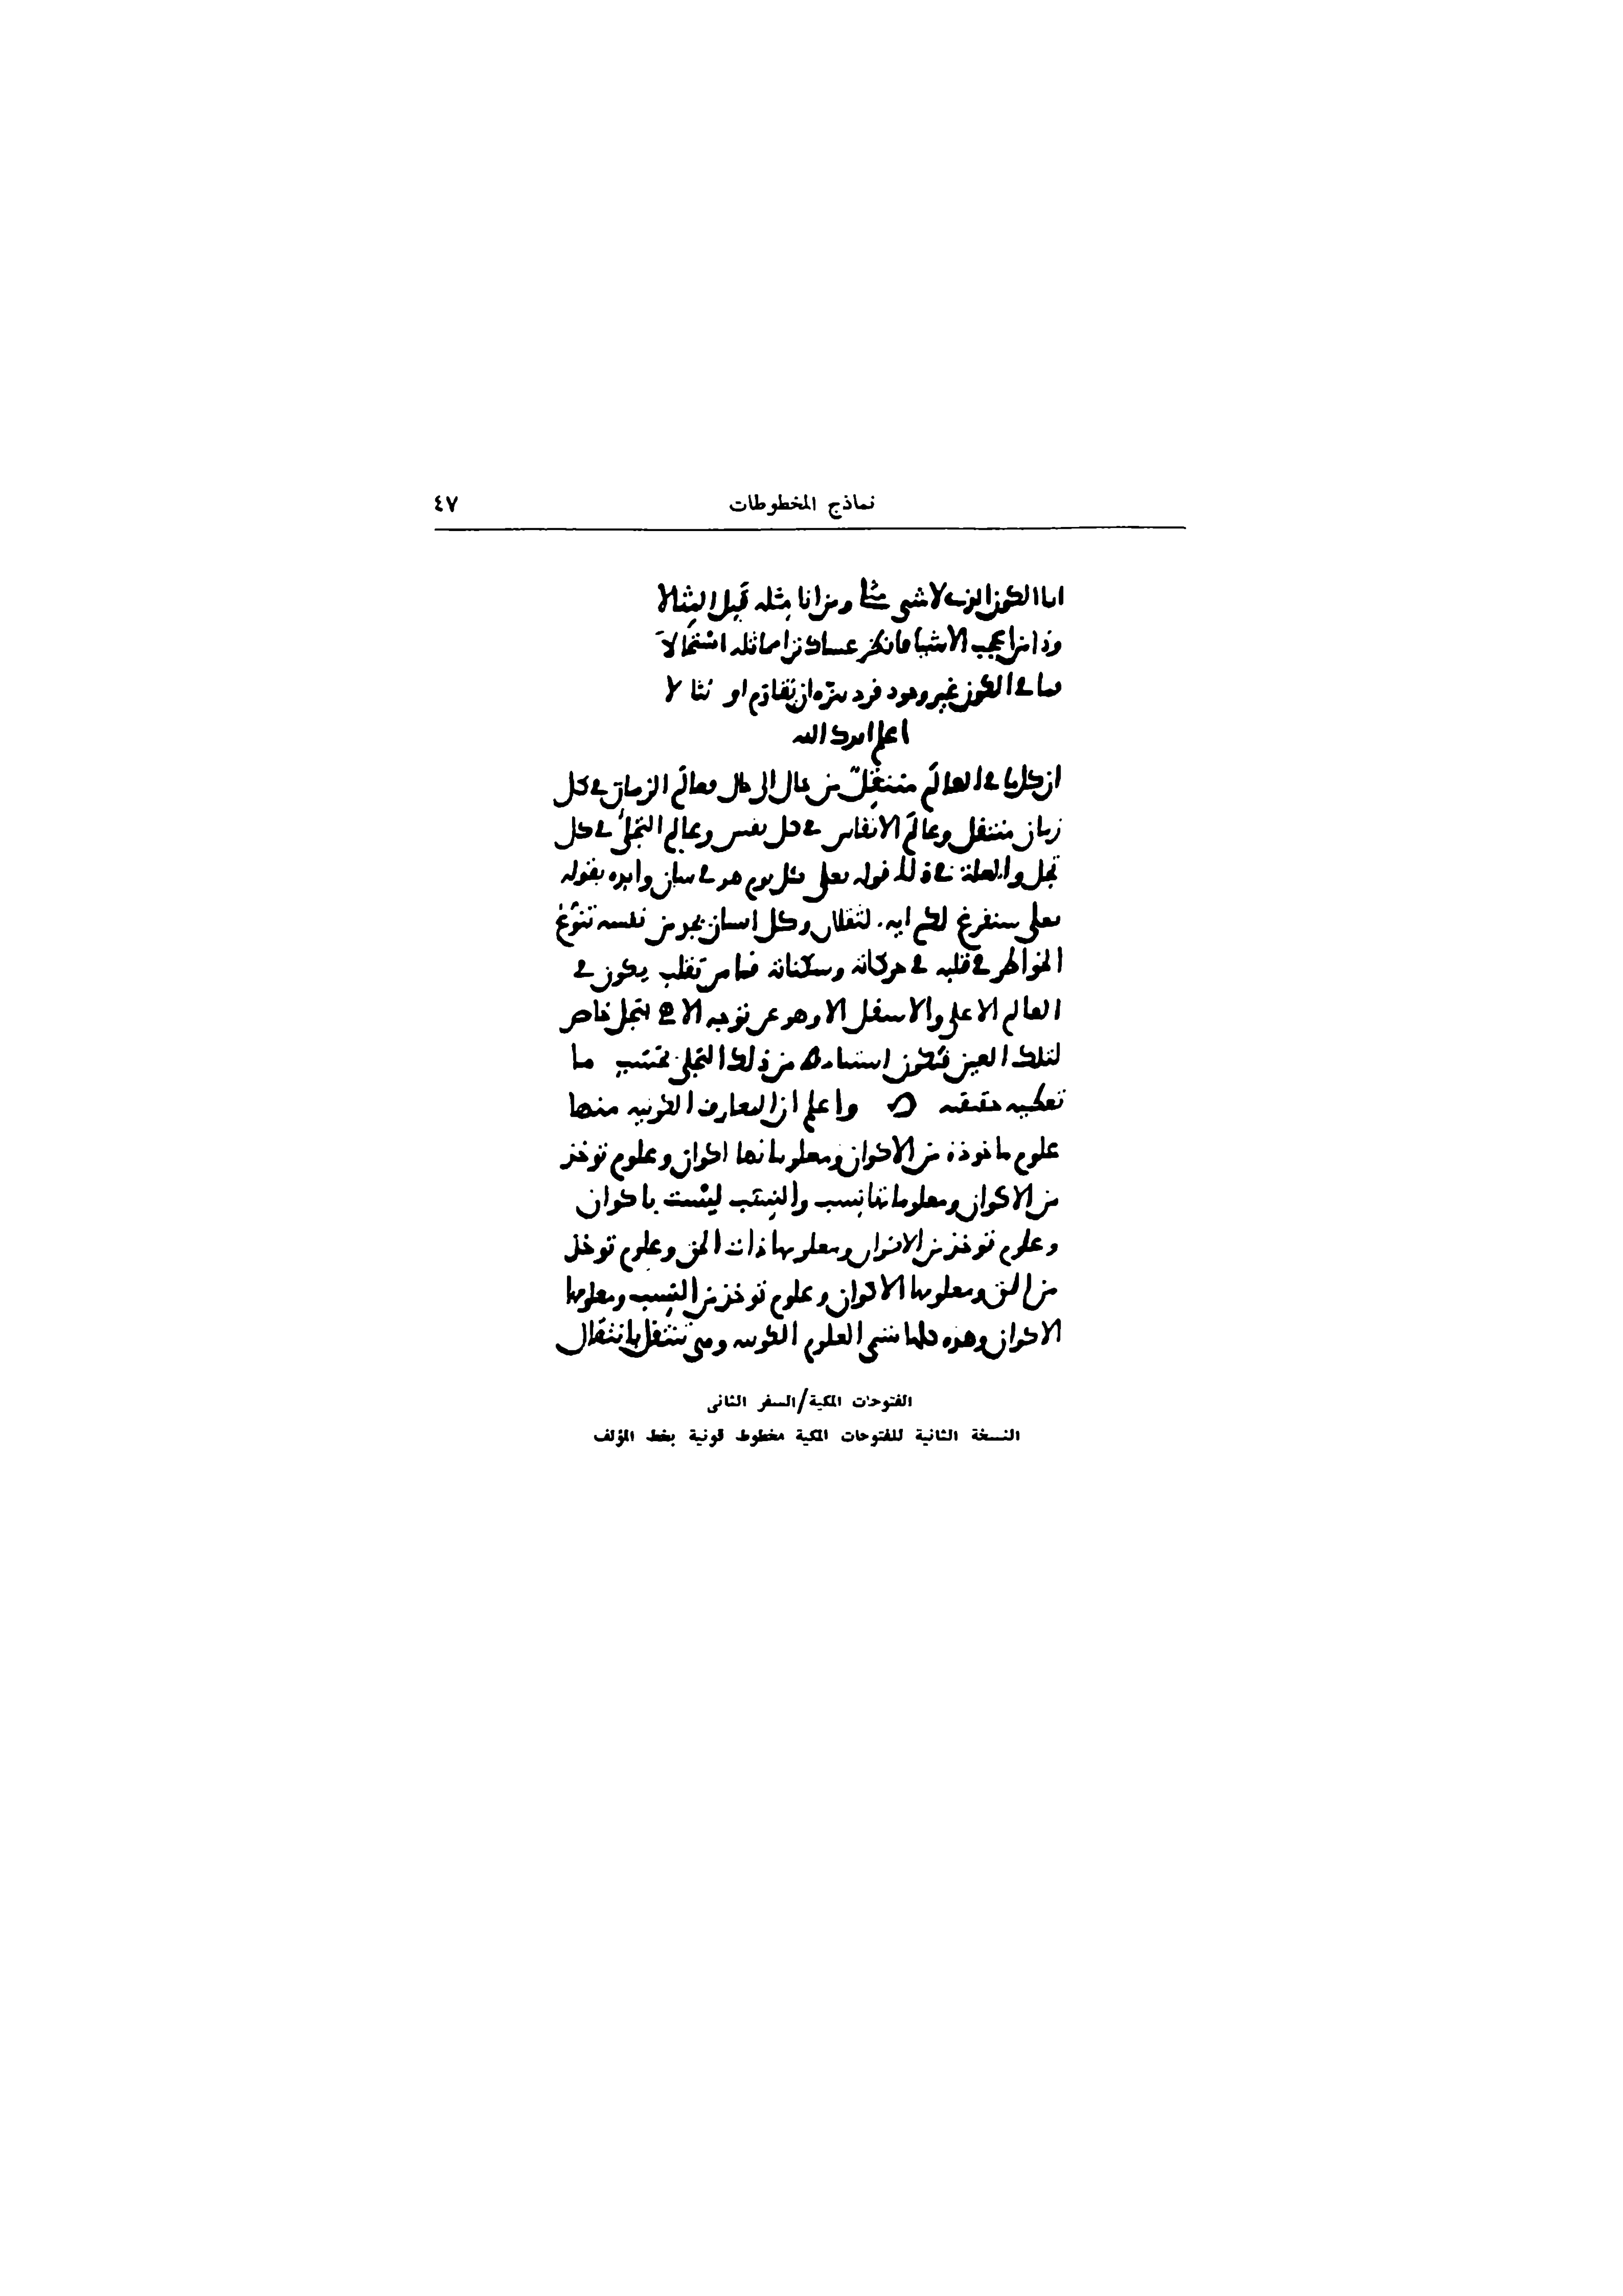 نماذج المخطوطات ٤٧
انا الكون الذي لا شي مثلي ومن انا مثله قَبِل المِثالا
وذا من اعجب الاشيا فانظر عساك ترا مماثله استحالا
فما في الكون غير وجود فرد تنزه ان يُقاوَم او يُنالا
اعلم ايدك الله
ان كل ما في العالَم منتقِلٌ من حال الى حال فعالَم الزمان في كل
زمان منتقل وعالَم الانفاس في كل نفس وعالم التجلي في كل
تجل والعلة في ذلك قوله تعلى كل يوم هو في شان وايده بقوله
تعلى سنفرغ لكم ايه الثقلان وكل انسان يجد من نفسه تنوّع
الخواطر في قلبه في حركاته وسكناته فما من تقلب يكون في
العالم الاعلى والاسفل الا وهو عن توجه الاهي بتجل خاص
لتلك العين فتكون استناده من ذلك التجلي بحسب ما
تعطيه حقيقته واعلم ان المعارف الكونيه منها
علوم ماخوذة من الاكوان ومعلوماتها اكوان وعلوم توخذ
من الاكوان ومعلوماتها نِسب والنِسَب ليست باكوان
وعلوم توخذ من الاكوان ومعلومها ذات الحق وعلوم توخذ
من الحق ومعلومها الاكوان وعلوم توخذ من النِسب ومعلومها
الاكوان وهذه كلها تسمى العلوم الكونيه وهي تنتقل بانتقال
الفتوحات المكية/السفر الثانى
النسخة الثانية للفتوحات المكية مخطوط قونية بخط المؤلف